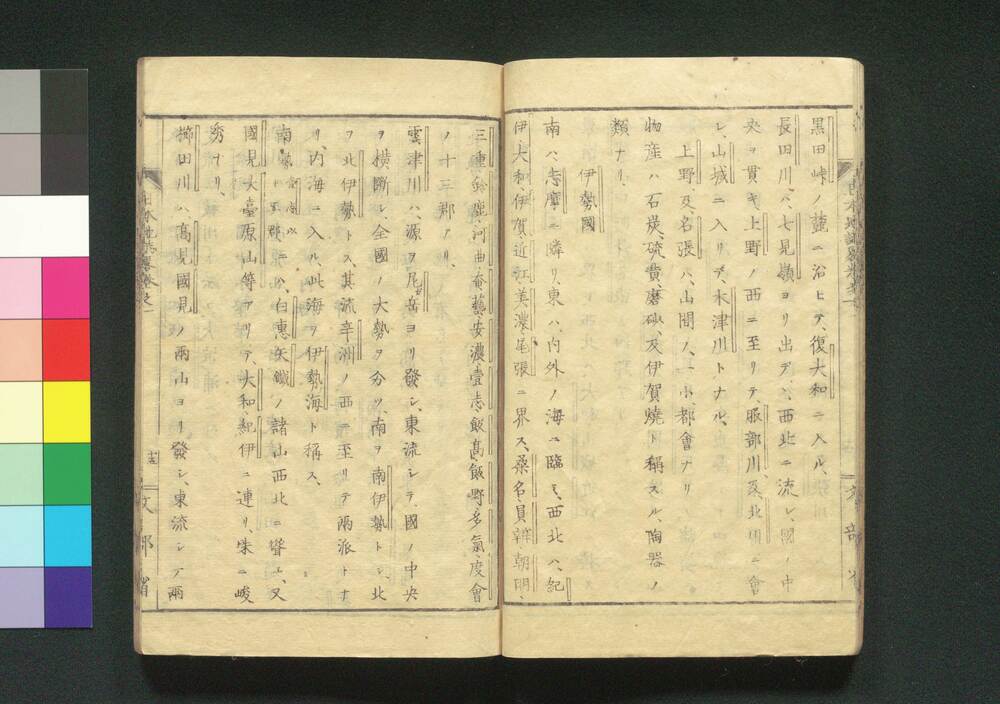 黒田峠ノ麓ニ沿ヒテ、復大和ニ入ル、
長田川ハ、七見嶺ヨリ出デ、西北ニ流レ、國ノ中
央ヲ貫キ上野ノ西ニ至リテ、服部川及北川ニ會
シ、山城ニ入リテ、木津川トナル、
上野、及名張ハ、山間ノ、一小都會ナリ
物産ハ石炭、硫黄、磨砂、及伊賀燒ト稱スル、陶器ノ
類ナリ、
伊勢國
南ハ、志摩ニ隣リ、東ハ、内外ノ海ニ臨ミ、西北ハ、紀
伊、大和、伊賀、近江、美濃、尾張ニ界ス、桑名、員辨、朝明、
三重、鈴鹿、河曲、奄藝、安濃、壹志、飯高、飯野、多氣、度會
ノ十三郡アリ、
雲津川ハ、源ヲ尼岳ヨリ發シ、東流シテ、國ノ中央
ヲ横斷シ、全國ノ大勢ヲ分ツ、南ヲ南伊勢トシ、北
ヲ北伊勢トス、其流辛洲ノ西ニ至リテ兩派トナ
リ、内海ニ入ル、此海ヲ伊勢海ト稱ス、
南ニハ、白惠、矢鑯ノ諸山西北ニ聳エ、又
國見、大臺原山等アリテ、大和、紀伊ニ連リ、殊ニ峻
秀ナリ、
櫛田川ハ、高見、國見ノ兩山ヨリ發シ、東流シテ兩
日本地誌畧卷之一
十五
文部省